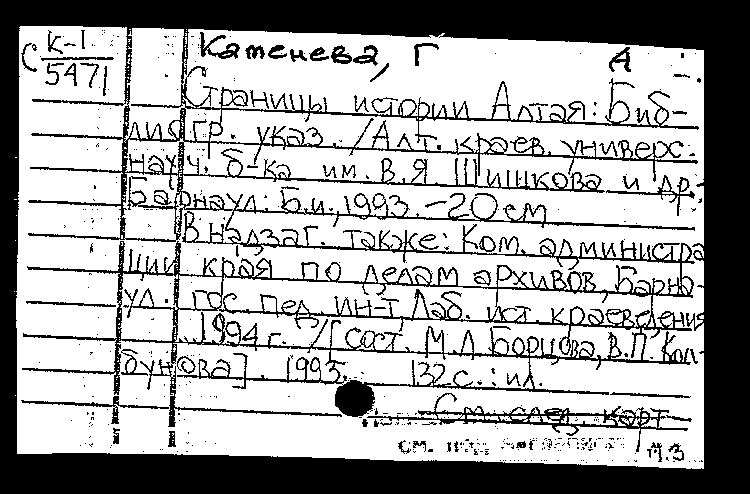 С К-1 Каменева, Г А
5471
Страницы истории Алтая: Биб-
лиогр. указ. / Алт. краев. универс.
науч. б-ка им. В.Я. Шишкова и др.-
Барнаул: Б.и., 1993. - 20 см
В надзаг. также: Ком. администра
ции края по делам архивов, Барна-
ул. гос. пед. ин-т, Лаб. ист. краеведения
1994 г. / [сост. М.Л. Борцова, В.П. Кол-
бунова]. 1993. 132 с.: ил.
См. след. карт
см. под м.3